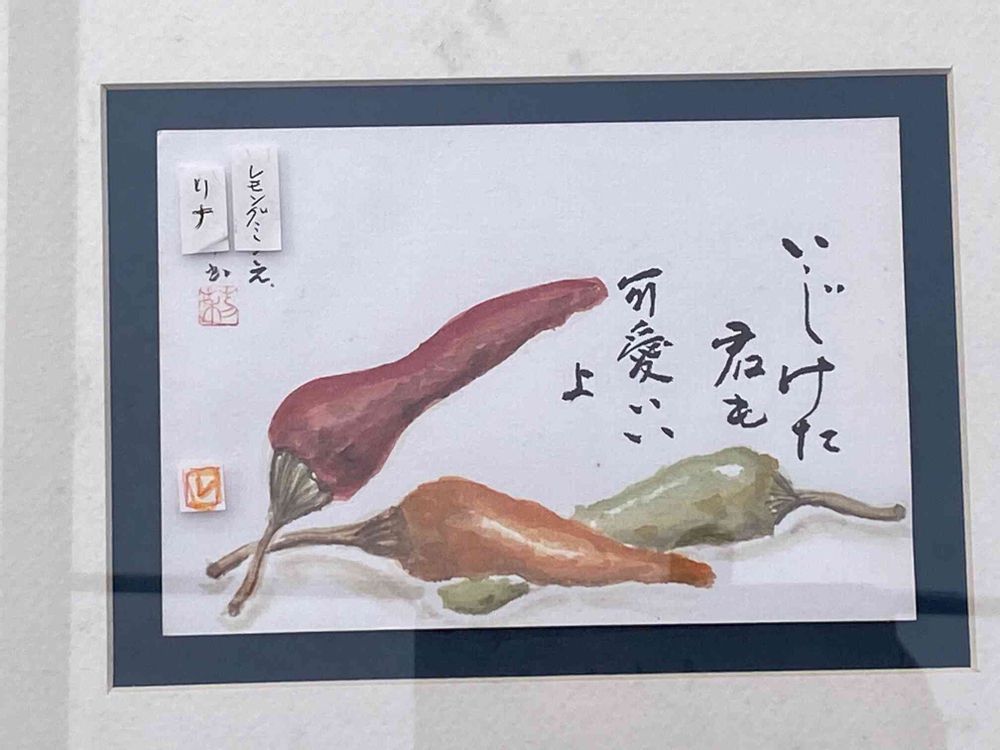 いじけた
君も
可愛い
よ
レモングミ
え
リナ
レ